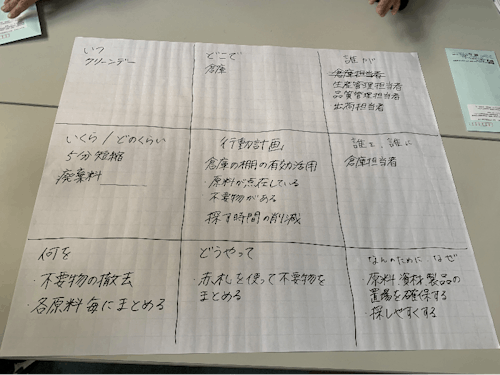 いつ
クリーンデー
どこで
倉庫
誰が
倉庫担当者
生産管理担当者
品質管理担当者
出荷担当者
いくら/どのくらい
5分短縮
廃棄料
行動計画
倉庫の棚の有効活用
原料が点在している
不要物がある
探す時間の削減
誰と、誰に
倉庫担当者
何を
・不要物の撤去
各原料毎にまとめる
どうやって
・赤札を使って不要物を
まとめる
なんのために なぜ
・原料 資材 製品の
置場を確保する
探しやすくする